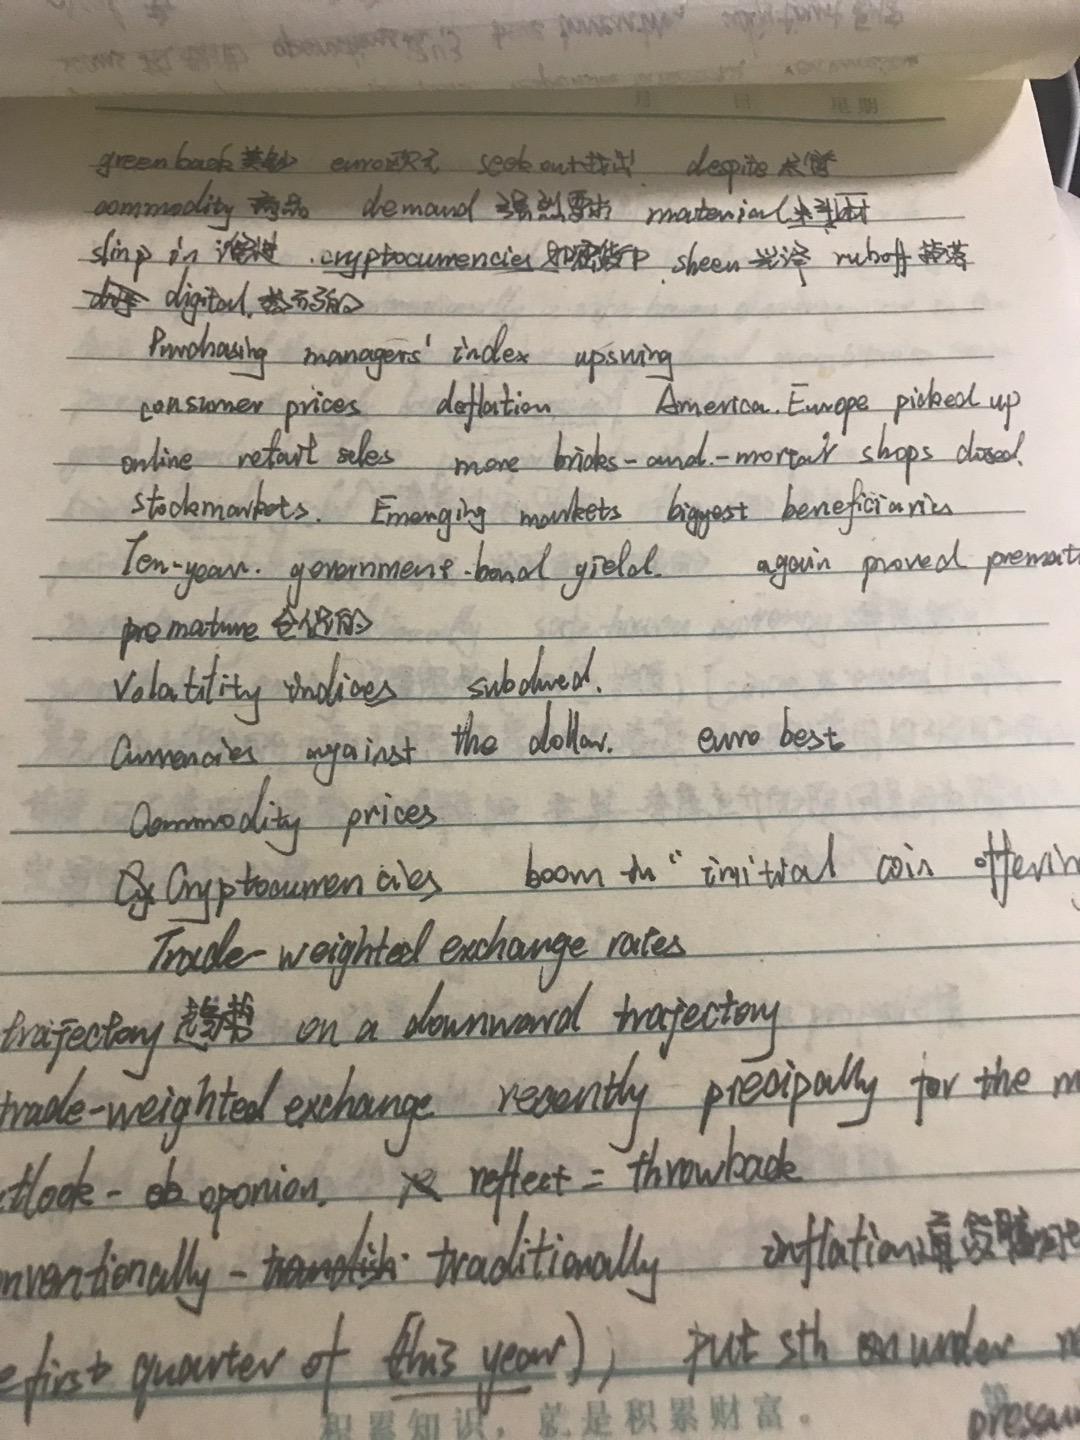 月 日 星期
greenback 美钞 euro 欧元 seek out 找出 despite 尽管
commodity 商品 demand 强烈要求 material
slinp in cryptocurrencies 加密货币 sheen 光泽 ruboff
digital
Purchasing managers' index upswing
consumer prices deflation America. Europe picked up
online retail sales more bricks-and-mortar shops closed.
stockmarkets. Emerging markets biggest beneficiaries
Ten-year. government-bond yield. again proved premat
premature
Volatility indices subdued.
Currencies against the dollar. euro best
Commodity prices
Cryptocurrencies boom in "initial coin offering
Trade-weighted exchange rates
trajectory 趋势 on a downward trajectory
trade-weighted exchange recently precipally for the m
tlook - oponion. reflect = throwback
nventionally - traditionally inflation 通货膨胀
e first quarter of (this year), put sth on under
pressu
积累知识，就是积累财富。